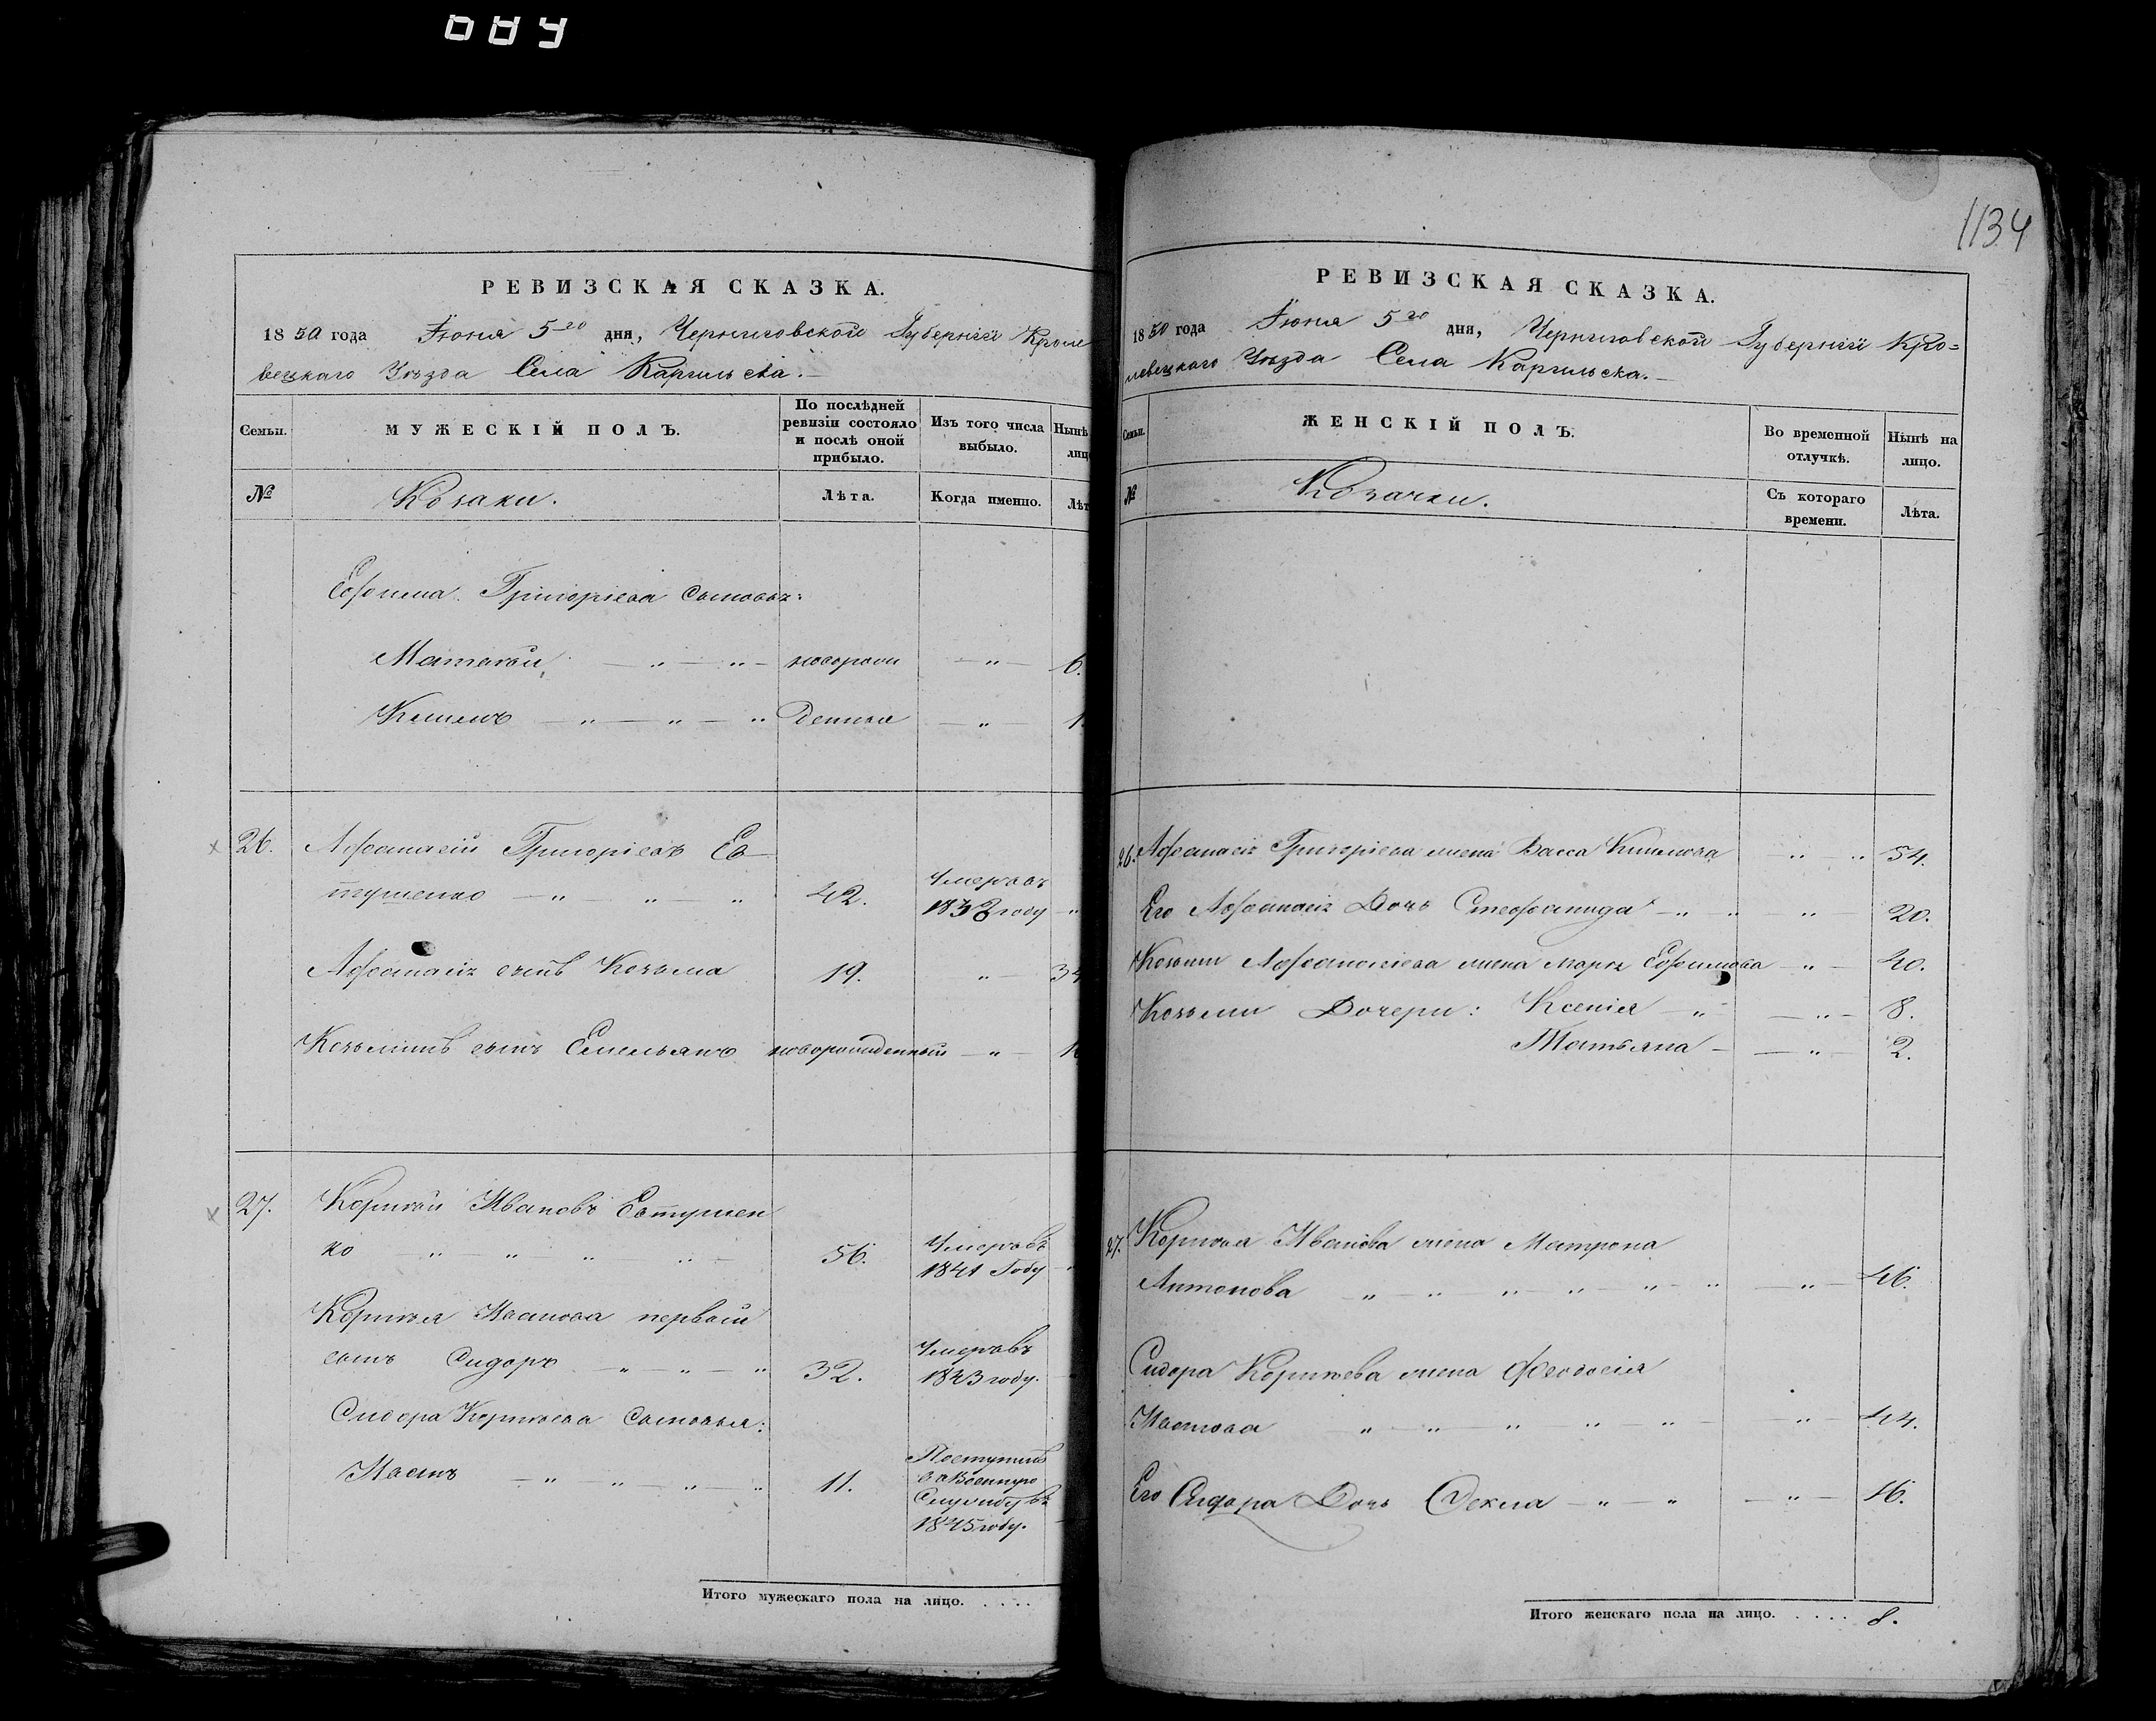 689
РЕВИЗСКАЯ СКАЗКА.
1850 года Іюня 5го дня, Черниговской Губерніи Кроле
вецкаго Уѣзда Села Каргильска.
Семьи.
МУЖЕСКІЙ ПОЛЪ.
По послѣдней ревизіи состояло и послѣ оной прибыло.
Изъ того числа выбыло.
Нынѣ лицо
№
Козаки.
Лѣта.
Когда именно.
Лѣт
Ефима Григоріева сыновья:
Матвѣй новорож 6.
денныя 1.
26. Афанасій Григоріевъ Ев
тушенко 42. Умеръ въ 1838 году
Афанасія сынъ Козьма 19. 34
Козьминъ сынъ Емельянъ новорожденный 1
27. Корнѣй Ивановъ Евтушен
ко 56. Умеръ въ 1841 Году
Корнѣя Иванова первый
сынъ Сидоръ 32. Умеръ въ 1843 году.
Сидора Корнѣева Сыновья:
Иванъ 11. Поступилъ въ Военную Службу въ 1845 году.
Итого мужескаго пола на лицо. . . . .
1134
РЕВИЗСКАЯ СКАЗКА.
1850 года Іюня 5го дня, Черниговской Губерніи Кро=
левецкаго Уѣзда Села Каргильска.
Семьи.
ЖЕНСКІЙ ПОЛЪ.
Во временной отлучкѣ.
Нынѣ на лицо.
№
Козачки.
Съ котораго времени.
Лѣта.
26. Афанасія Григоріева жена Васса 54.
Его Афанасія Дочь Стефанида 20.
Козьмы Афанасіева жена Марья Ефимова 40.
Козьмы Дочери: Ксенія 8.
Татьяна 2.
27. Корнѣя Иванова жена Матрона
Антонова 46.
Сидора Корнѣева жена Феодосія
Иванова 44.
Его Сидора Дочь Фекла 16.
Итого женскаго пола на лицо. . . . . 8.